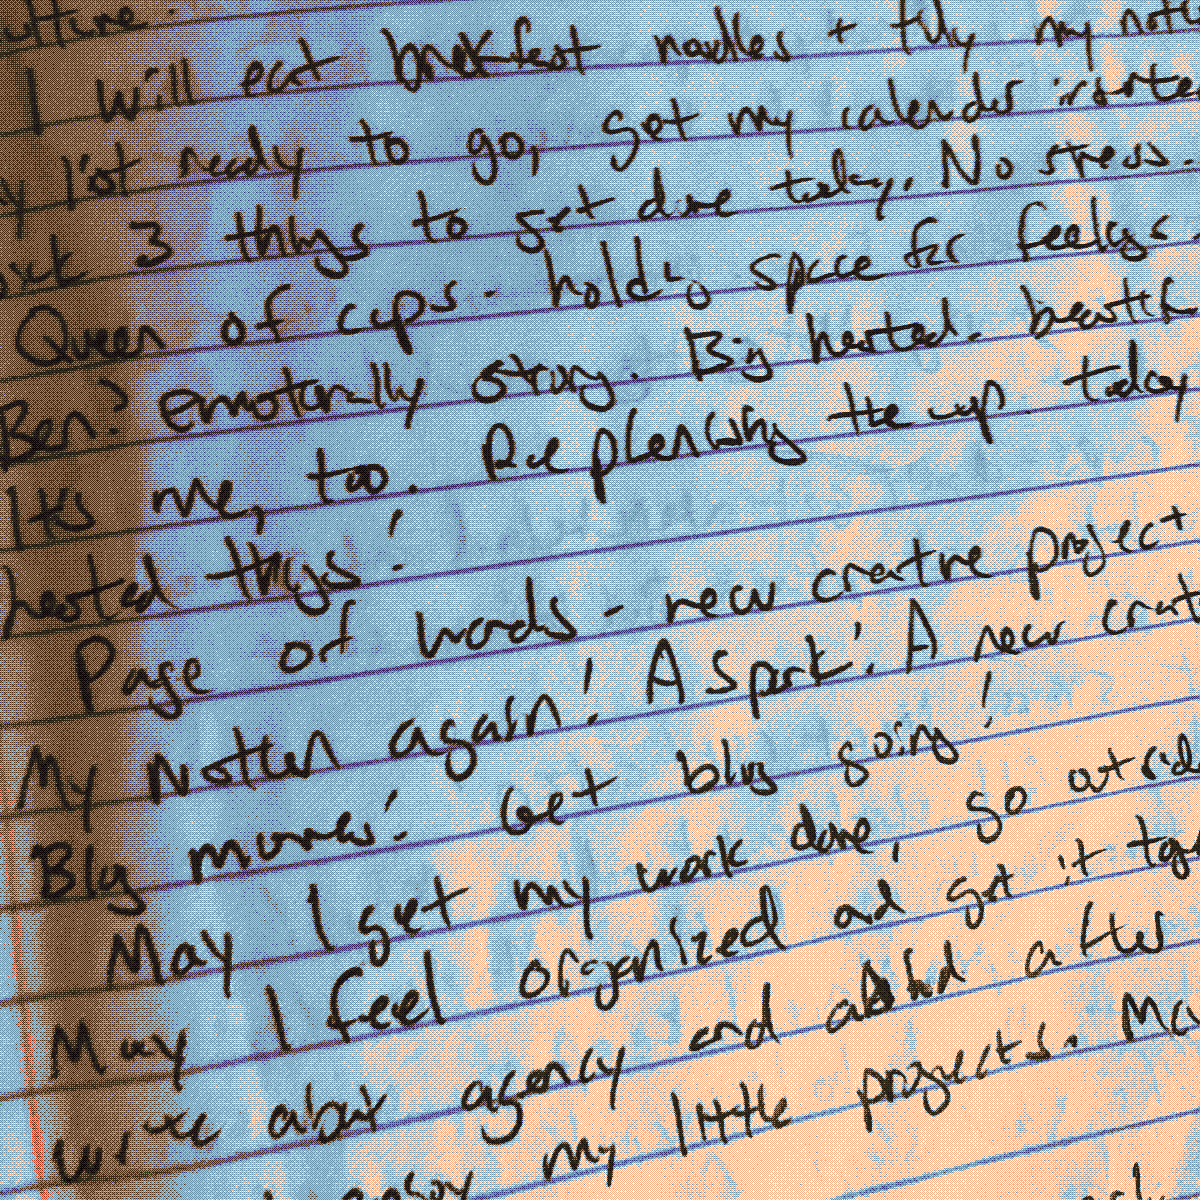 I will eat breakfast noodles + tidy my
list ready to go, get my calendar
3 things to get done today. No stress.
Queen of cups - holding space for feelings.
Ben? emotionally strong. Big hearted.
It's me, too. Replenishing the cup. today
hearted things!
Page of wands - new creative project
My Notten again! A spark! A new
Blog mornes! Get blog going!
May I get my work done, go
May I feel organized and get it
write about agency and after
my little projects.